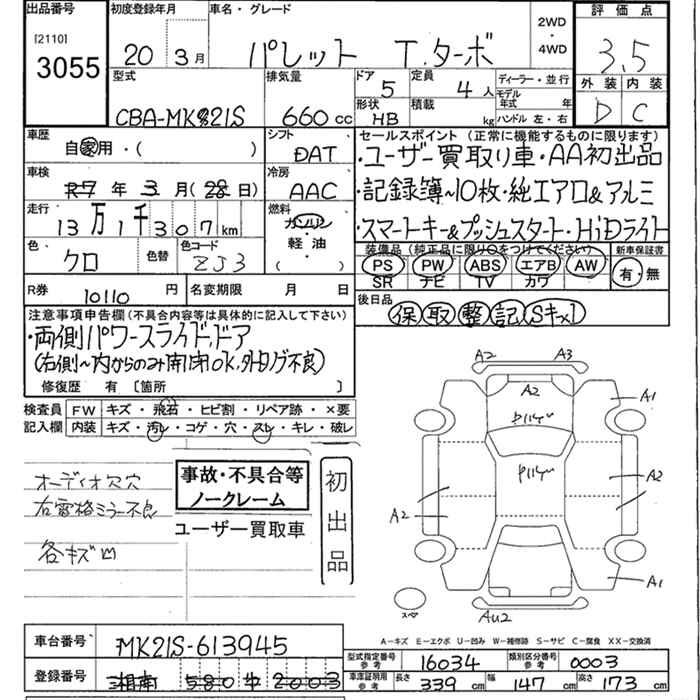 出品番号
[2110]
3055
初度登録年月
20年3月
車名・グレード
パレット T.ターボ
2WD
・
4WD
評価点
3.5
外装 内装
D C
型式
CBA-MK21S
排気量
660cc
ドア
5
定員
4人
形状
HB
積載
kg
ディーラー・並行
モデル年式 年
ハンドル 左・右
車歴
自家用・( )
シフト
DAT
車検
R7年3月(28日)
冷房
AAC
走行
13万1千307km
燃料
ガソリン
軽・油
( )
色
クロ
色替
色コード
ZJ3
R券
10110円
名変期限 月 日
セールスポイント(正常に機能するものに限ります)
・ユーザー買取り車・AA初出品
・記録簿〜10枚・純エアロ&アルミ
・スマートキー&プッシュスタート・HiDライト
装備品(純正品に限り○をつけてください)
PS PW ABS エアB AW
SR ナビ TV カワ
新車保証書
有・無
後日品
保 取 整 記 Sキー×1
注意事項申告欄(不具合内容等は具体的に記入して下さい)
・両側パワースライドドア
(右側〜内からのみ開閉OK,外ロック不良)
修復歴 有 〔箇所 〕
検査員記入欄
FW キズ・飛石・ヒビ割・リペア跡・×要
内装 キズ・汚レ・コゲ・穴・スレ・キレ・破レ
オーディオ欠穴
右電格ミラー不良
各キズ凹
事故・不具合等
ノークレーム
ユーザー買取車
初出品
A2 A3
A2
A1
A2
A2
A1
AU2
スペ
A-キズ E-エクボ U-凹み W-補修跡 S-サビ C-腐食 XX-交換済
車台番号
MK21S-613945
登録番号
湘南 580 2003
型式指定番号
参考
16034
類別区分番号
参考
0003
車庫証明用
参考
長さ 339cm 幅 147cm 高さ 173cm